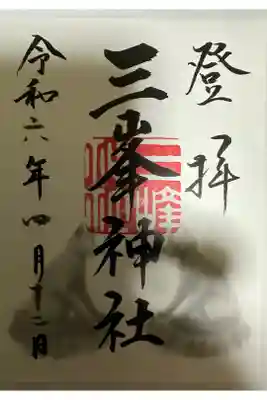 登拝
三峯神社
令和六年四月十二日